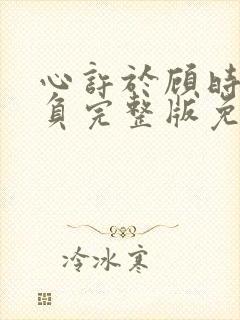 心許於顾時
負完整版免
冷冰寒